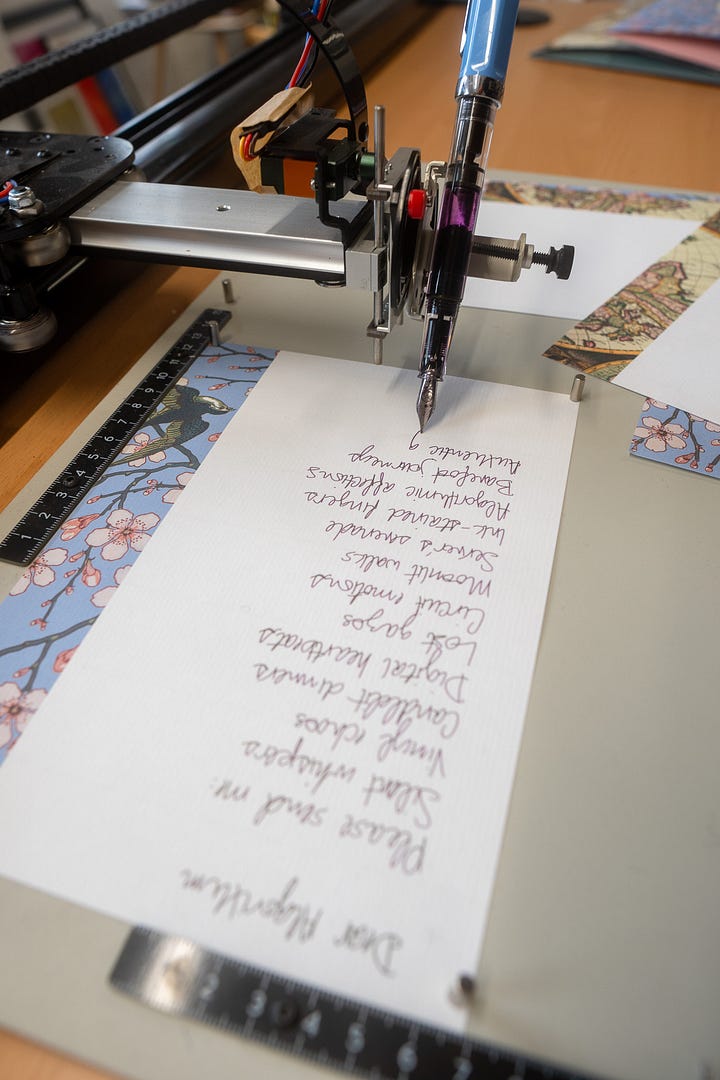 Dear Algorithm
Please send me:
Silent whispers
Vinyl echoes
Candlelit dinners
Digital heartbeats
Lost gazes
Circuit emotions
Moonlit walks
Server's serenade
Ink-stained fingers
Algorithmic affections
Barefoot journeys
Authentic g
1 2 3 4 5 6 7 8 9 10 11 12 13
2 3 4 5 6 7